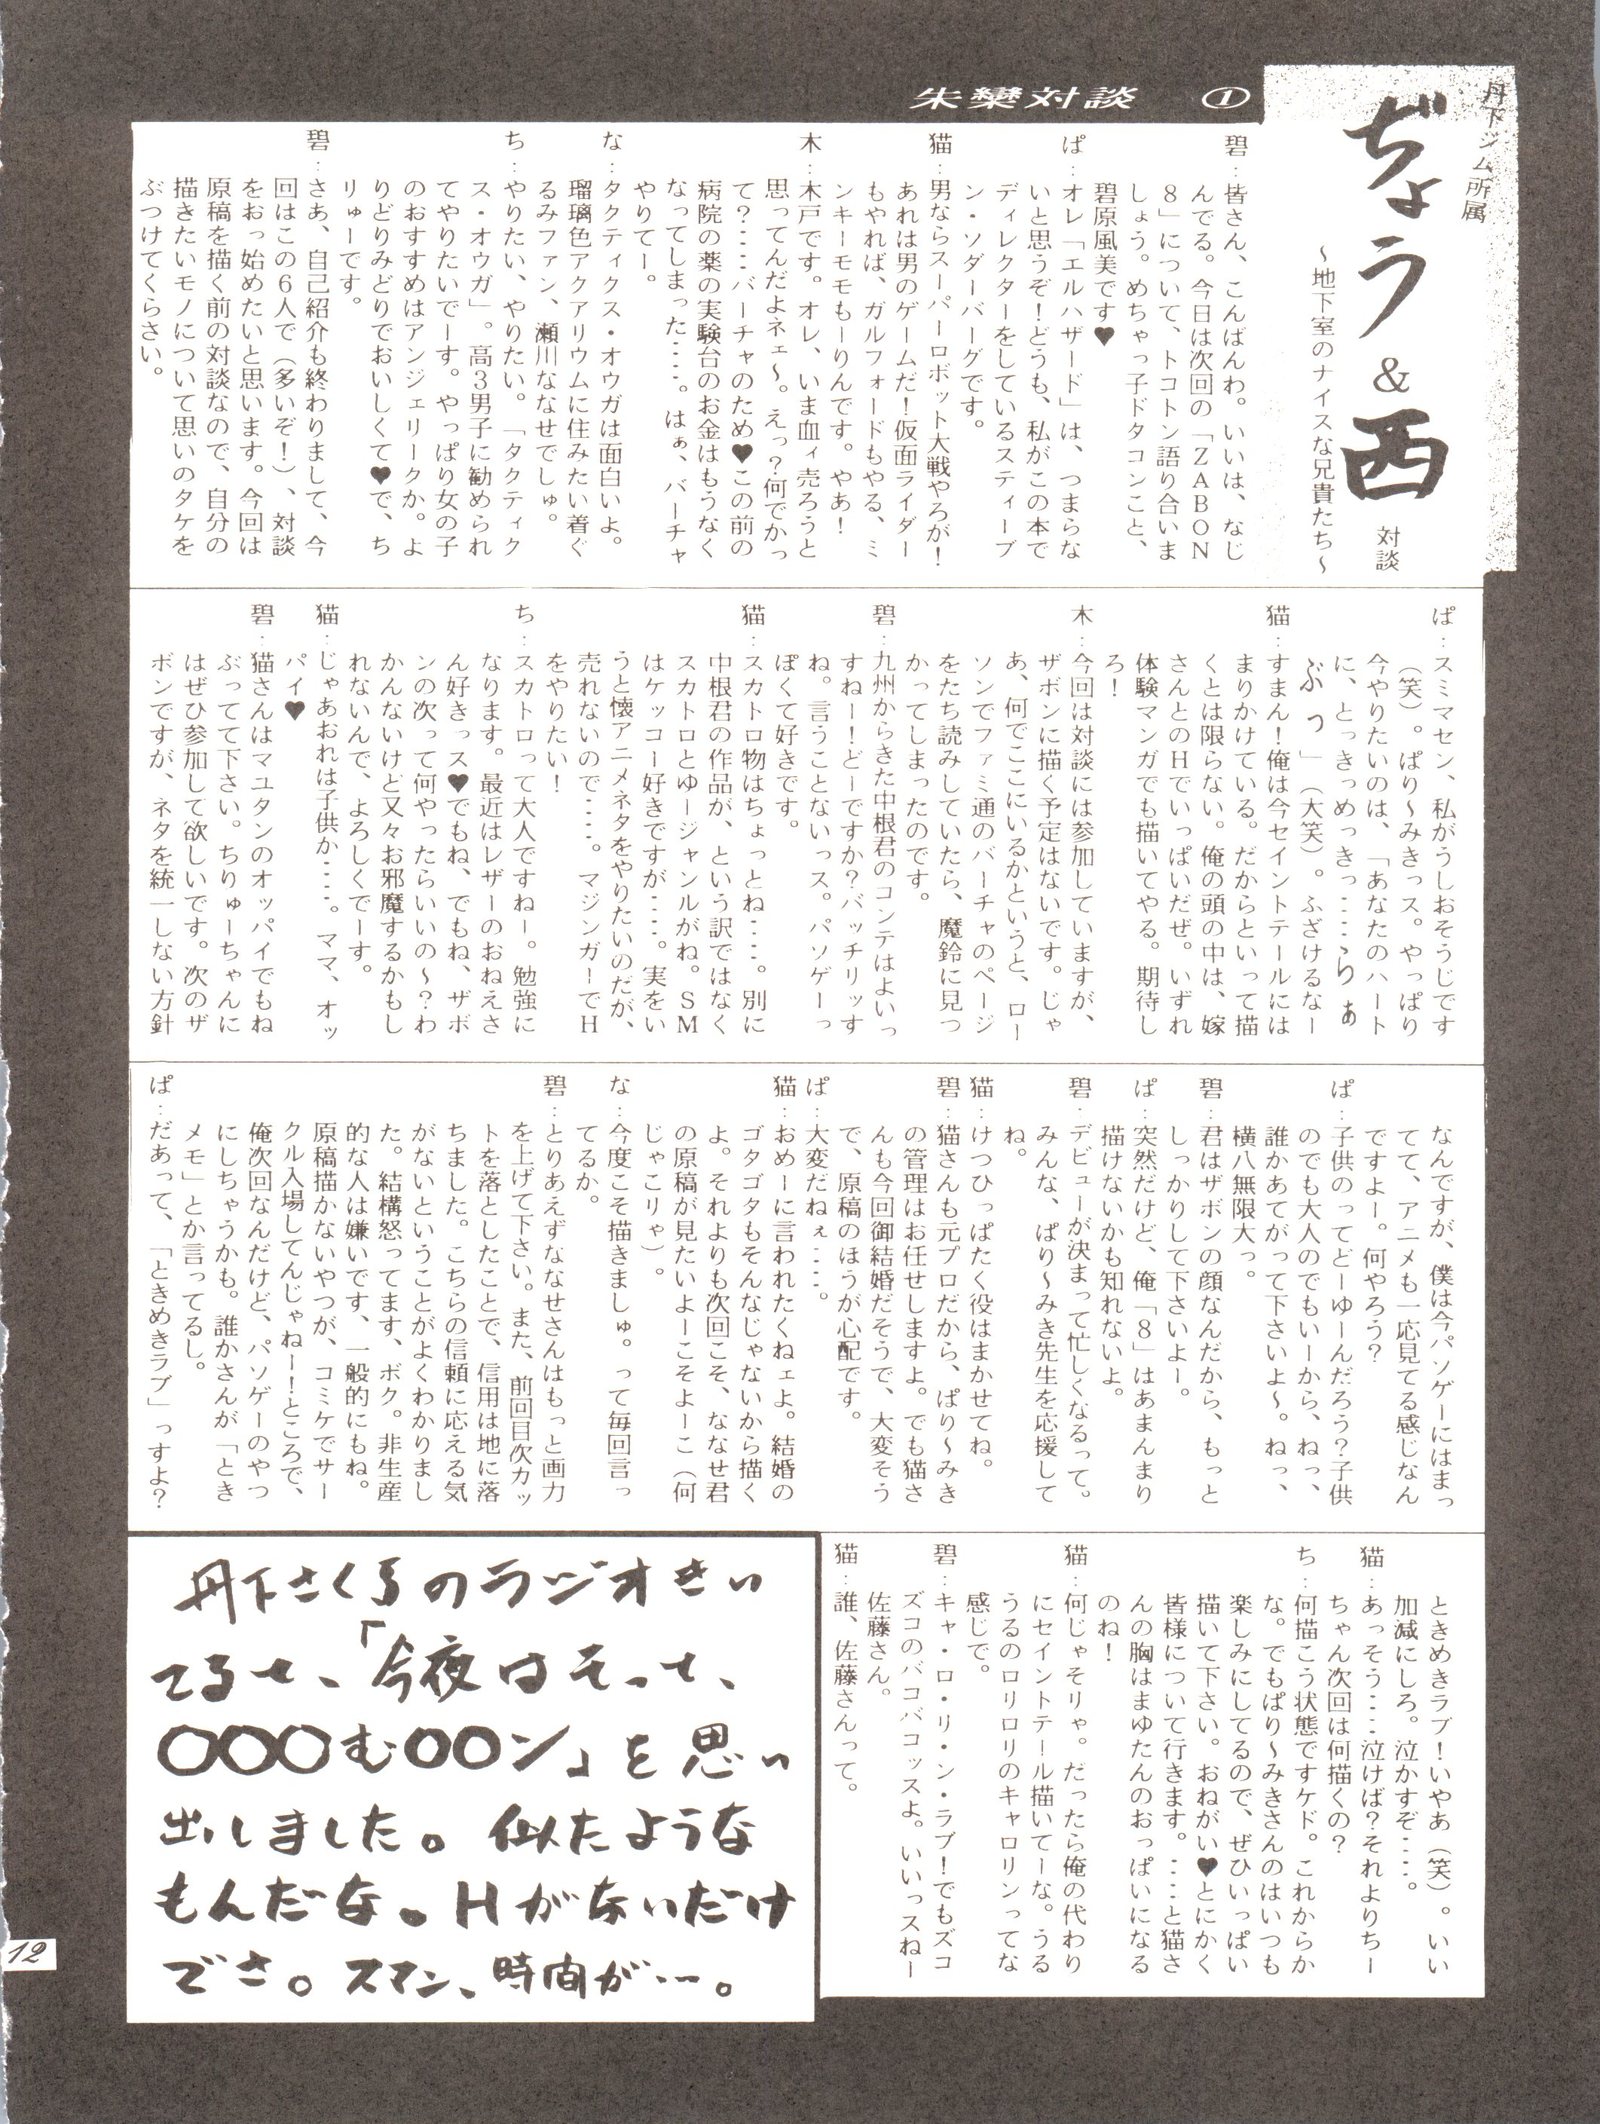 朱欒対談　①
丹下ジム所属
ぢょう&西
対談
～地下室のナイスな兄貴たち～
碧：皆さん、こんばんわ。いいは、なじ
んでる。今日は次回の「ZABON
8」について、トコトン語り合いま
しょう。めちゃっ子ドタコンこと、
碧原風美です♥
ぱ：オレ「エルハザード」は、つまらな
いと思うぞ！どうも、私がこの本で
ディレクターをしているスティーブ
ン・ソダーバーグです。
猫：男ならスーパーロボット大戦やろが！
あれは男のゲームだ！仮面ライダー
もやれば、ガルフォードもやる、ミ
ンキーモモもーりんです。やあ！
木：木戸です。オレ、いま血ィ売ろうと
思ってんだよネェ～。えっ？何でかっ
て？‥‥バーチャのため♥この前の
病院の薬の実験台のお金はもうなく
なってしまった‥‥。はぁ、バーチャ
やりてー。
な：タクティクス・オウガは面白いよ。
瑠璃色アクアリウムに住みたい着ぐ
るみファン、瀬川ななせでしゅ。
ち：やりたい、やりたい。「タクティク
ス・オウガ」。高3男子に勧められ
てやりたいでーす。やっぱり女の子
のおすすめはアンジェリークか。よ
りどりみどりでおいしくて♥で、ち
りゅーです。
碧：さあ、自己紹介も終わりまして、今
回はこの6人で（多いぞ！）、対談
をおっ始めたいと思います。今回は
原稿を描く前の対談なので、自分の
描きたいモノについて思いのタケを
ぶつけてくらさい。
ぱ：スミマセン、私がうしおそうじです
（笑）。ぱり～みきっス。やっぱり
今やりたいのは、「あなたのハート
に、とっきっめっきっ‥‥らぁ
ぶっ」（大笑）。ふざけるなー
猫：すまん！俺は今セイントテールには
まりかけている。だからといって描
くとは限らない。俺の頭の中は、嫁
さんとのHでいっぱいだぜ。いずれ
体験マンガでも描いてやる。期待し
ろ！
木：今回は対談には参加していますが、
ザボンに描く予定はないです。じゃ
あ、何でここにいるかというと、ロー
ソンでファミ通のバーチャのページ
をたち読みしていたら、魔鈴に見つ
かってしまったのです。
碧：九州からきた中根君のコンテはよいっ
すねー！どーですか？バッチリッす
ね。言うことないっス。パソゲーっ
ぽくて好きです。
猫：スカトロ物はちょっとね‥‥。別に
中根君の作品が、という訳ではなく
スカトロとゆージャンルがね。SM
はケッコー好きですが‥‥。実をい
うと懐アニメネタをやりたいのだが、
売れないので‥‥。マジンガーでH
をやりたい！
ち：スカトロって大人ですねー。勉強に
なります。最近はレザーのおねえさ
ん好きっス♥でもね、でもね、ザボ
ンの次って何やったらいいの～？わ
かんないけど又々お邪魔するかもし
れないんで、よろしくでーす。
猫：じゃあおれは子供か‥‥。ママ、オッ
パイ♥
碧：猫さんはマユタンのオッパイでもね
ぶってて下さい。ちりゅーちゃんに
はぜひ参加して欲しいです。次のザ
ボンですが、ネタを統一しない方針
なんですが、僕は今パソゲーにはまっ
てて、アニメも一応見てる感じなん
ですよー。何やろう？
ぱ：子供のってどーゆーんだろう？子供
のでも大人のでもいーから、ねっ、
誰かあてがって下さいよ～。ねっ、
横八無限大っ。
碧：君はザボンの顔なんだから、もっと
しっかりして下さいよー。
ぱ：突然だけど、俺「8」はあまんまり
描けないかも知れないよ。
碧：デビューが決まって忙しくなるって。
みんな、ぱり～みき先生を応援して
ね。
猫：けつひっぱたく役はまかせてね。
碧：猫さんも元プロだから、ぱり～みき
の管理はお任せしますよ。でも猫さ
んも今回御結婚だそうで、大変そう
で、原稿のほうが心配です。
ぱ：大変だねぇ‥‥。
猫：おめーに言われたくねェよ。結婚の
ゴタゴタもそんなじゃないから描く
よ。それよりも次回こそ、ななせ君
の原稿が見たいよーこそよーこ（何
じゃこりゃ）。
な：今度こそ描きましゅ。って毎回言っ
てるか。
碧：とりあえずななせさんはもっと画力
を上げて下さい。また、前回目次カッ
トを落としたことで、信用は地に落
ちました。こちらの信頼に応える気
がないということがよくわかりまし
た。結構怒ってます、ボク。非生産
的な人は嫌いです、一般的にもね。
原稿描かないやつが、コミケでサー
クル入場してんじゃねー！ところで、
俺次回なんだけど、パソゲーのやつ
にしちゃうかも。誰かさんが「とき
メモ」とか言ってるし。
ぱ：だあって、「ときめきラブ」っすよ？
ときめきラブ！いやあ（笑）。いい
加減にしろ。泣かすぞ‥‥。
猫：あっそう‥‥泣けば？それよりちー
ちゃん次回は何描くの？
ち：何描こう状態ですケド。これからか
な。でもぱり～みきさんのはいつも
楽しみにしてるので、ぜひいっぱい
描いて下さい。おねがい♥とにかく
皆様について行きます。‥‥と猫さ
んの胸はまゆたんのおっぱいになる
のね！
猫：何じゃそりゃ。だったら俺の代わり
にセイントテール描いてーな。うる
うるのロリロリのキャロリンってな
感じで。
碧：キャ・ロ・リ・ン・ラブ！でもズコ
ズコのバコバコッスよ。いいっスねー
佐藤さん。
猫：誰、佐藤さんって。
丹下さくらのラジオきい
てるせ、「今夜はそっと、
○○○む○○ン」を思い
出しました。似たような
もんだな。Hがないだけ
でさ。スマン、時間が‥‥。
12